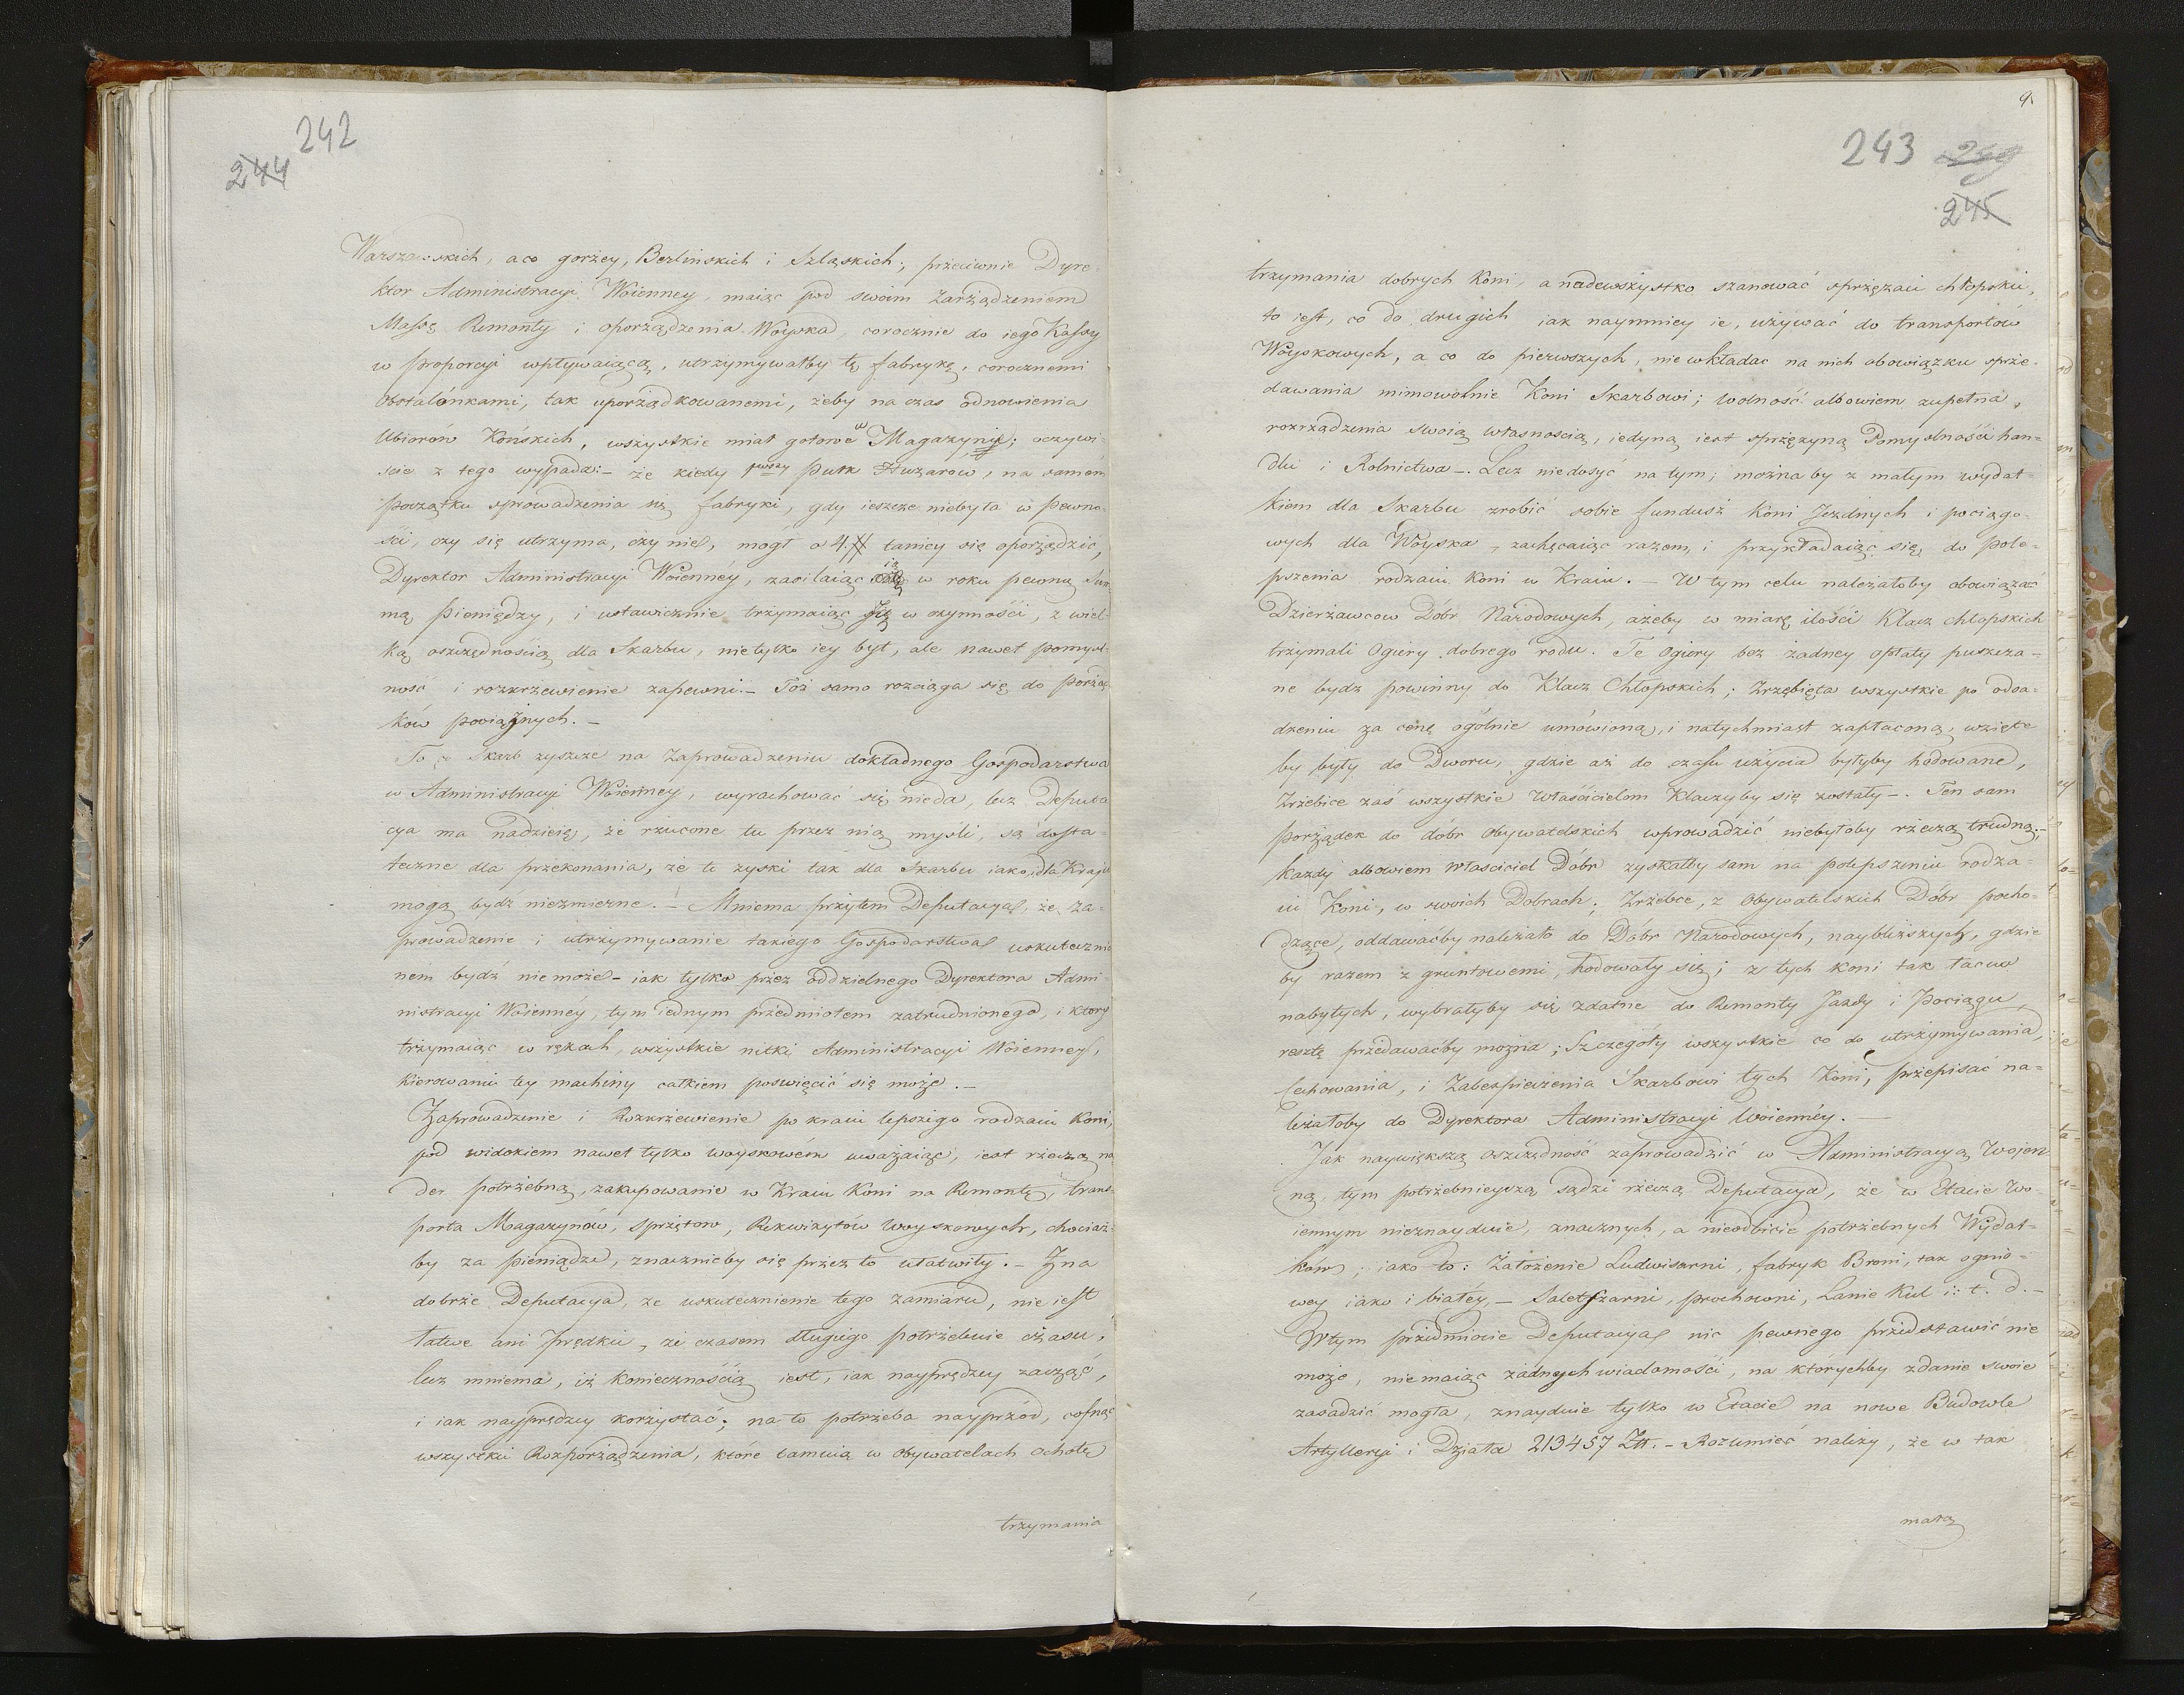 242
244
Warszawskich, a co gorżey, Berlinskich i Szląskich; przeciwnie Dyre-
ktor Administracyi Woienney, maiąc pod swoim Zarżądzeniem
Massę Remonty i oporządzenia Woyska, corocznie do iego Kassy
w proporcyi wpływaiącą, utrzymywałby tę fabrykę, corocznemi
Obstalónkami, tak uporżądkowanemi, żeby na czas odnowienia
Ubiorów Końskich, wszystkie miał gotowe w Magazynie; oczywi-
ście z tego wypada:- że kiedy pwszy Pułk Huzarow, na samém
początku sprowadzenia się fabryki, gdy ieszcze niebyła w pewno-
ści, czy się utrzyma, czy nie, mógł o 4.# taniey się oporżądzić,
Dyrektor Administracyi Woienney, zasilaiąc ią w roku pewną Sum
mą pieniędzy, i ustawicznie trzymaiąc Ją w czynności, z wiel-
ką oszczędnością dla Skarbu, nietylko iey byt, ale nawet pomyśl-
ność i rozkrzewienie zapewni.- Toż samo rozciąga się do porżąd
ków pociążnych.-
To co Skarb zyszcze na Zaprowadzeniu dokładnego Gospodarstwa
w Administracyi Woienney, wyrachować się nieda, lecz Deputa
cya ma nadzieię, że rzucone tu przez nią myśli, są dosta-
teczne dla przekonania, że te zyski tak dla Skarbu iako i dla Kraju
mogą bydź niezmierne.- Mniema przytem Deputacya, że za-
prowadzenie i utrzymywanie takiego Gospodarstwa uskutecznio
nem bydź nie może - iak tylko przez oddzielnego Dyrektora Admi-
nistracyi Woienney, tym iednym przedmiotem zatrudnionego, i ktory
trzymaiąc w rękach, wszystkie nitki Administracyi Woienney,
Kierowaniu tey machiny całkiem poswięcić się może.-
Zaprowadzenie i Rozkrzewienie po kraiu lepszego rodzaiu Koni,
pod widokiem nawet tylko woyskowém uważaiąc, iest rzeczą na
der potrzebną, zakupowanie w Kraiu Koni na Remontę, trans-
porta Magazynów, sprżętow, Rekwizytów Woyskowych, chociaż-
by za pieniądze, znacznieby się przez to ułatwiły.- Zna
dobrze Deputacya, że uskutecznienie tego zamiaru, nie iest
łatwe ani prędkie, że czasem długiego potrzebuie czasu,
lecz mniema, iż koniecznością iest, iak nayprędzey zacząć,
i iak nayprędzey korzystać; na to potrzeba nayprzód, cofnąć
wszystkie Rozporżądzenia, które tamuią w Obywatelach ochotę
trzymania
9
243
245
trzymania dobrych Koni, a nadewszystko szanować sprżężaii chłopskie,
to iest, co do drugich iak naymniey ie, używać do transportów
Woyskowych, a co do pierwszych, nie wkładac na nich obowiązku sprże-
dawania mimowolnie Koni Skarbowi; wolność albowiem zupełna,
rozrządzenia swoią własnoscią, iedyną iest sprżężyną Pomyslności han=
dlu i Rolnictwa-. Lecz niedosyć na tym; możnaby z małym wydat-
kiem dla Skarbu zrobić sobie fundusz Koni Jezdnych i pociągo-
wych dla Woyska, zachęcaiąc razem, i przykładaiąc się, do pole-
pszenia rodzaiu Koni w Kraiu.- W tym celu należałoby obowiązać
Dzierżawcow Dóbr Narodowych, ażeby w miarę ilości Klacz chłopskich
trzymali Ogiery dobrego rodu. Te Ogiery bez żadney opłaty puszcza-
ne bydz powinny do Klacz Chłopskich; Zrzębięta wszystkie po odsa-
dzeniu za cenę ogólnie umówioną, i natychmiast zapłaconą, wzięte
by były do Dworu, gdzie aż do czasu użycia byłyby hodowane,
Zrzebice zaś wszystkie Właścicielom Klaczyby się zostały-. Ten sam
porżądek do dóbr Obywatelskich wprowadzić niebyłoby rzeczą trudną:-
każdy albowiem Własciciel Dóbr zyskałby sam na polepszeniu rodza-
iu Koni, w swoich Dobrach; Zrzebce, z Obywatelskich Dóbr pocho-
dzące, oddawaćby należało do Dóbr Narodowych, naybliższych, gdzie
by razem z gruntowemi, hodowały się; z tych koni tak łacno
nabytych, wybrałyby się zdatne do Remonty Jazdy i Pociągu,
resztę przedawaćby można; Szczegóły wszystkie co do utrzymywania,
Cechowania, i Zabespieczenia Skarbowi tych Koni, przepisac na-
leżałoby do Dyrektora Administracyi Woienney.-
Jak naywiększą oszczędność zaprowadzić w Administracyą Wojen
ną, tym potrzebnieyszą sądzi rzeczą Deputacya, że w Etacie Wo-
iennym nieznayduie, znacznych, a nieodbicie potrzebnych Wydat=
ków; iako to: Założenie Ludwisarni, fabryk Broni, tak ognio-
wey iako i białéy,- Saletrzarni, prochowni, Lanie Kul i: t. d.-
W tym przedmiocie Deputacya nic pewnego przedstawić nie
może, nie maiąc żadnych wiadomości, na którychby zdanie swoie
zasadzić mogła, znayduie tylko w Etacie na nowe Budowle
Artylleryi i Działa 213457 Złł.- Rozumieć należy, że w tak
małą